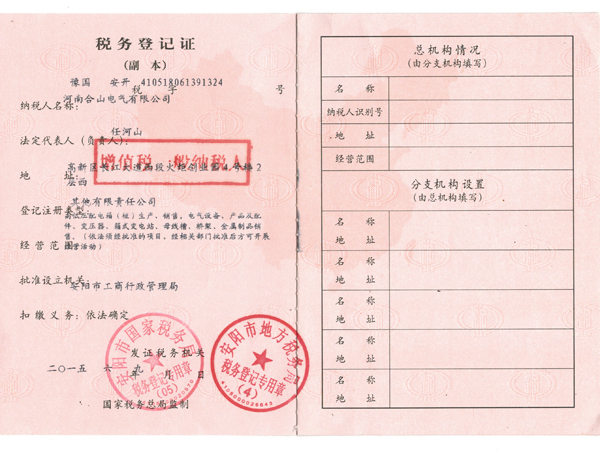 税务登记证
(副 本)
豫国 安开 410518061391324
税 字 号
纳税人名称: 河南合山电气有限公司
法定代表人(负责人): 任河山
增值税一般纳税人
地 址: 高新区长江大道西段火炬创业园4号楼2
层西
登记注册类型: 其他有限责任公司
高低压配电箱(柜)生产、销售,电气设备、产品及配
件、变压器、箱式变电站、母线槽、桥架、金属制品销
售。(依法须经批准的项目,经相关部门批准后方可开展
经营活动)
经营范围:
批准设立机关: 安阳市工商行政管理局
扣缴义务: 依法确定
发证税务机关
二〇一五 年 六 月 九 日
国家税务总局监制
安阳市国家税务局
税务登记专用章
(05)
安阳市地方税务局
税务登记专用章
(4)
4105000026843
总机构情况
(由分支机构填写)
名 称
纳税人识别号
地 址
经营范围
分支机构设置
(由总机构填写)
名 称
地 址
名 称
地 址
名 称
地 址
名 称
地 址
名 称
地 址